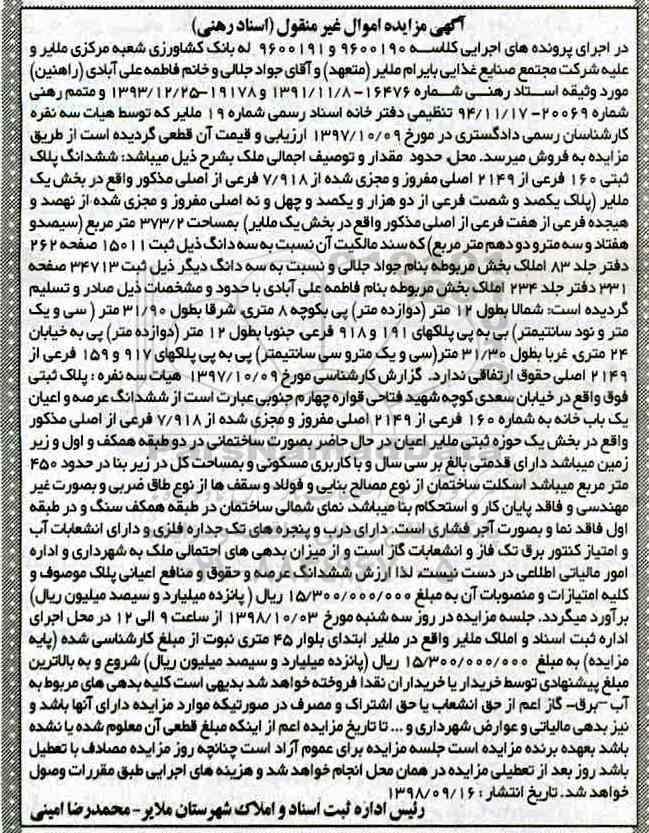 آگهی مزایده اموال غیر منقول (اسناد رهنی)
در اجرای پرونده های اجرایی کلاسه ۹۶۰۰۱۹۰ و ۹۶۰۰۱۹۱ له بانک کشاورزی شعبه مرکزی ملایر و
علیه شرکت مجتمع صنایع غذایی بایرام ملایر (متعهد) و آقای جواد جلالی و خانم فاطمه علی آبادی (راهنین)
مورد وثیقه اسناد رهنی شماره ۱۶۴۷۶-۱۳۹۱/۱۱/۸ و ۱۹۱۷۸-۱۳۹۳/۱۲/۲۵ و متمم رهنی
شماره ۲۰۰۶۹-۹۴/۱۱/۱۷ تنظیمی دفتر خانه اسناد رسمی شماره ۱۹ ملایر که توسط هیات سه نفره
کارشناسان رسمی دادگستری در مورخ ۱۳۹۷/۱۰/۰۹ ارزیابی و قیمت آن قطعی گردیده است از طریق
مزایده به فروش میرسد. محل، حدود مقدار و توصیف اجمالی ملک بشرح ذیل میباشد: ششدانگ پلاک
ثبتی ۱۶۰ فرعی از ۲۱۴۹ اصلی مفروز و مجزی شده از ۷/۹۱۸ فرعی از اصلی مذکور واقع در بخش یک
ملایر (پلاک یکصد و شصت فرعی از دو هزار و یکصد و چهل و نه اصلی مفروز و مجزی شده از نهصد و
هیجده فرعی از هفت فرعی از اصلی مذکور واقع در بخش یک ملایر) بمساحت ۳۷۳/۲ متر مربع (سیصدو
هفتاد و سه مترو دو دهم متر مربع) که سند مالکیت آن نسبت به سه دانگ ذیل ثبت ۱۵۰۱۱ صفحه ۲۶۲
دفتر جلد ۸۳ املاک بخش مربوطه بنام جواد جلالی و نسبت به سه دانگ دیگر ذیل ثبت ۳۴۷۱۳ صفحه
۳۳۱ دفتر جلد ۲۳۴ املاک بخش مربوطه بنام فاطمه علی آبادی با حدود و مشخصات ذیل صادر و تسلیم
گردیده است: شمالا بطول ۱۲ متر (دوازده متر) پی بکوچه ۸ متری، شرقا بطول ۳۱/۹۰ متر ( سی و یک
متر و نود سانتیمتر) پی به پی پلاکهای ۱۹۱ و ۹۱۸ فرعی، جنوبا بطول ۱۲ متر (دوازده متر) پی به خیابان
۲۴ متری، غربا بطول ۳۱/۳۰ متر(سی و یک مترو سی سانتیمتر) پی به پی پلاکهای ۹۱۷ و ۱۵۹ فرعی از
۲۱۴۹ اصلی حقوق ارتفاقی ندارد. گزارش کارشناسی مورخ ۱۳۹۷/۱۰/۰۹ هیات سه نفره : پلاک ثبتی
فوق واقع در خیابان سعدی کوچه شهید فتاحی قواره چهارم جنوبی عبارت است از ششدانگ عرصه و اعیان
یک باب خانه به شماره ۱۶۰ فرعی از ۲۱۴۹ اصلی مفروز و مجزی شده از ۷/۹۱۸ فرعی از اصلی مذکور
واقع در بخش یک حوزه ثبتی ملایر اعیان در حال حاضر بصورت ساختمانی در دو طبقه همکف و اول و زیر
زمین میباشد دارای قدمتی بالغ بر سی سال و با کاربری مسکونی و بمساحت کل در زیر بنا در حدود ۴۵۰
متر مربع میباشد اسکلت ساختمان از نوع مصالح بنایی و فولاد و سقف ها از نوع طاق ضربی و بصورت غیر
مهندسی و فاقد پایان کار و استحکام بنا میباشد، نمای شمالی ساختمان در طبقه همکف سنگ و در طبقه
اول فاقد نما و بصورت آجر فشاری است. دارای درب و پنجره های تک جداره فلزی و دارای انشعابات آب
و امتیاز کنتور برق تک فاز و انشعابات گاز است و از میزان بدهی های احتمالی ملک به شهرداری و اداره
امور مالیاتی اطلاعی در دست نیست، لذا ارزش ششدانگ عرصه و حقوق و منافع اعیانی پلاک موصوف و
کلیه امتیازات و منصوبات آن به مبلغ ۱۵/۳۰۰/۰۰۰/۰۰۰ ریال ( پانزده میلیارد و سیصد میلیون ریال)
برآورد میگردد. جلسه مزایده در روز سه شنبه مورخ ۱۳۹۸/۱۰/۰۳ از ساعت ۹ الی ۱۲ در محل اجرای
اداره ثبت اسناد و املاک ملایر واقع در ملایر ابتدای بلوار ۴۵ متری نبوت از مبلغ کارشناسی شده (پایه
مزایده) به مبلغ ۱۵/۳۰۰/۰۰۰/۰۰۰ ریال (پانزده میلیارد و سیصد میلیون ریال) شروع و به بالاترین
مبلغ پیشنهادی توسط خریدار یا خریداران نقدا فروخته خواهد شد بدیهی است کلیه بدهی های مربوط به
آب -برق- گاز اعم از حق انشعاب یا حق اشتراک و مصرف در صورتیکه موارد مزایده دارای آنها باشد و
نیز بدهی مالیاتی و عوارض شهرداری و ... تا تاریخ مزایده اعم از اینکه مبلغ قطعی آن معلوم شده یا نشده
باشد بعهده برنده مزایده است جلسه مزایده برای عموم آزاد است چنانچه روز مزایده مصادف با تعطیل
باشد روز بعد از تعطیلی مزایده در همان محل انجام خواهد شد و هزینه های اجرایی طبق مقررات وصول
خواهد شد. تاریخ انتشار : ۱۳۹۸/۰۹/۱۶
رئیس اداره ثبت اسناد و املاک شهرستان ملایر- محمدرضا امینی